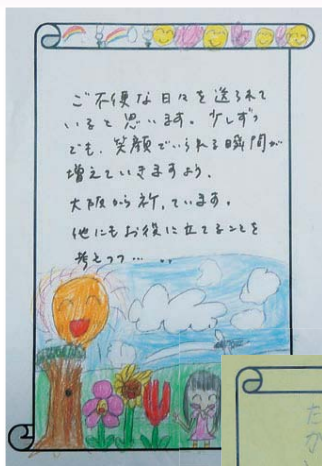 ご不便な日々を送られて
いると思います。少しずつ
でも、笑顔でいられる瞬間が
増えていきますよう、
大阪から祈っています。
他にもお役に立てることを
考えつつ…..
た
が